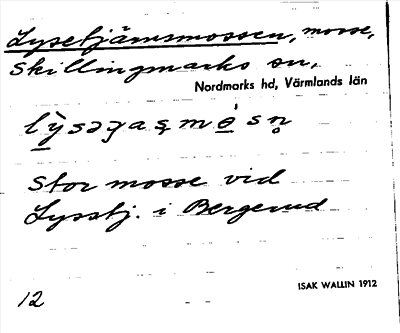 Lysetjärnsmossen, mosse,
Skillingmarks sn,
Nordmarks hd, Värmlands län
Stor mosse vid
Lysetj. i Bergerud
ISAK WALLIN 1912
12